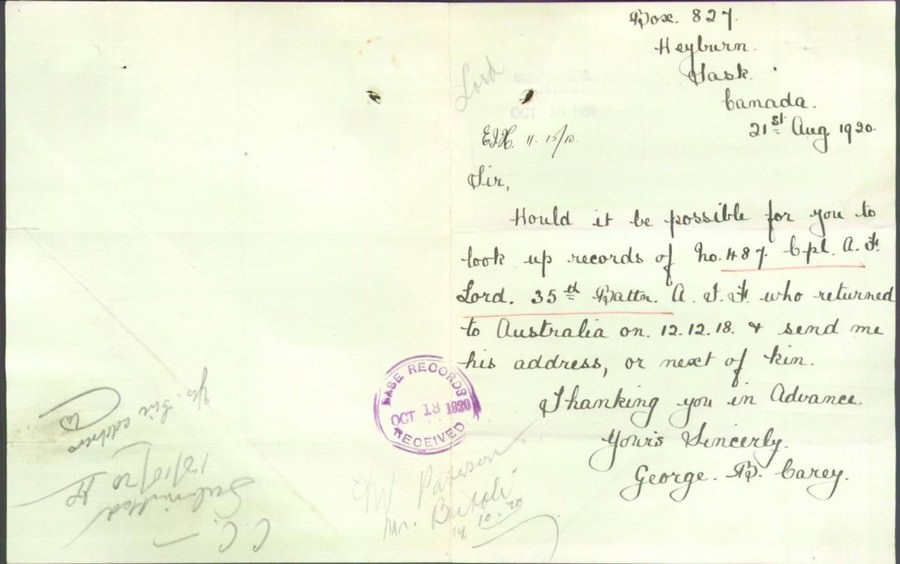 Box. 827.
Heyburn.
Sask.
Canada.
21st Aug 1920.
Lord
Sir,
Would it be possible for you to
look up records of No. 487. Cpl. A. F.
Lord. 35th Battn. A. I. F. who returned
to Australia on. 12.12.18. & send me
his address, or next of kin.
Thanking you in Advance.
Yours Sincerly.
George. B. Carey.
BASE RECORDS
OCT 13 1920
RECEIVED
Mr
14.10.20
Yes. Give address
C.C.
Submitted
13/10/20